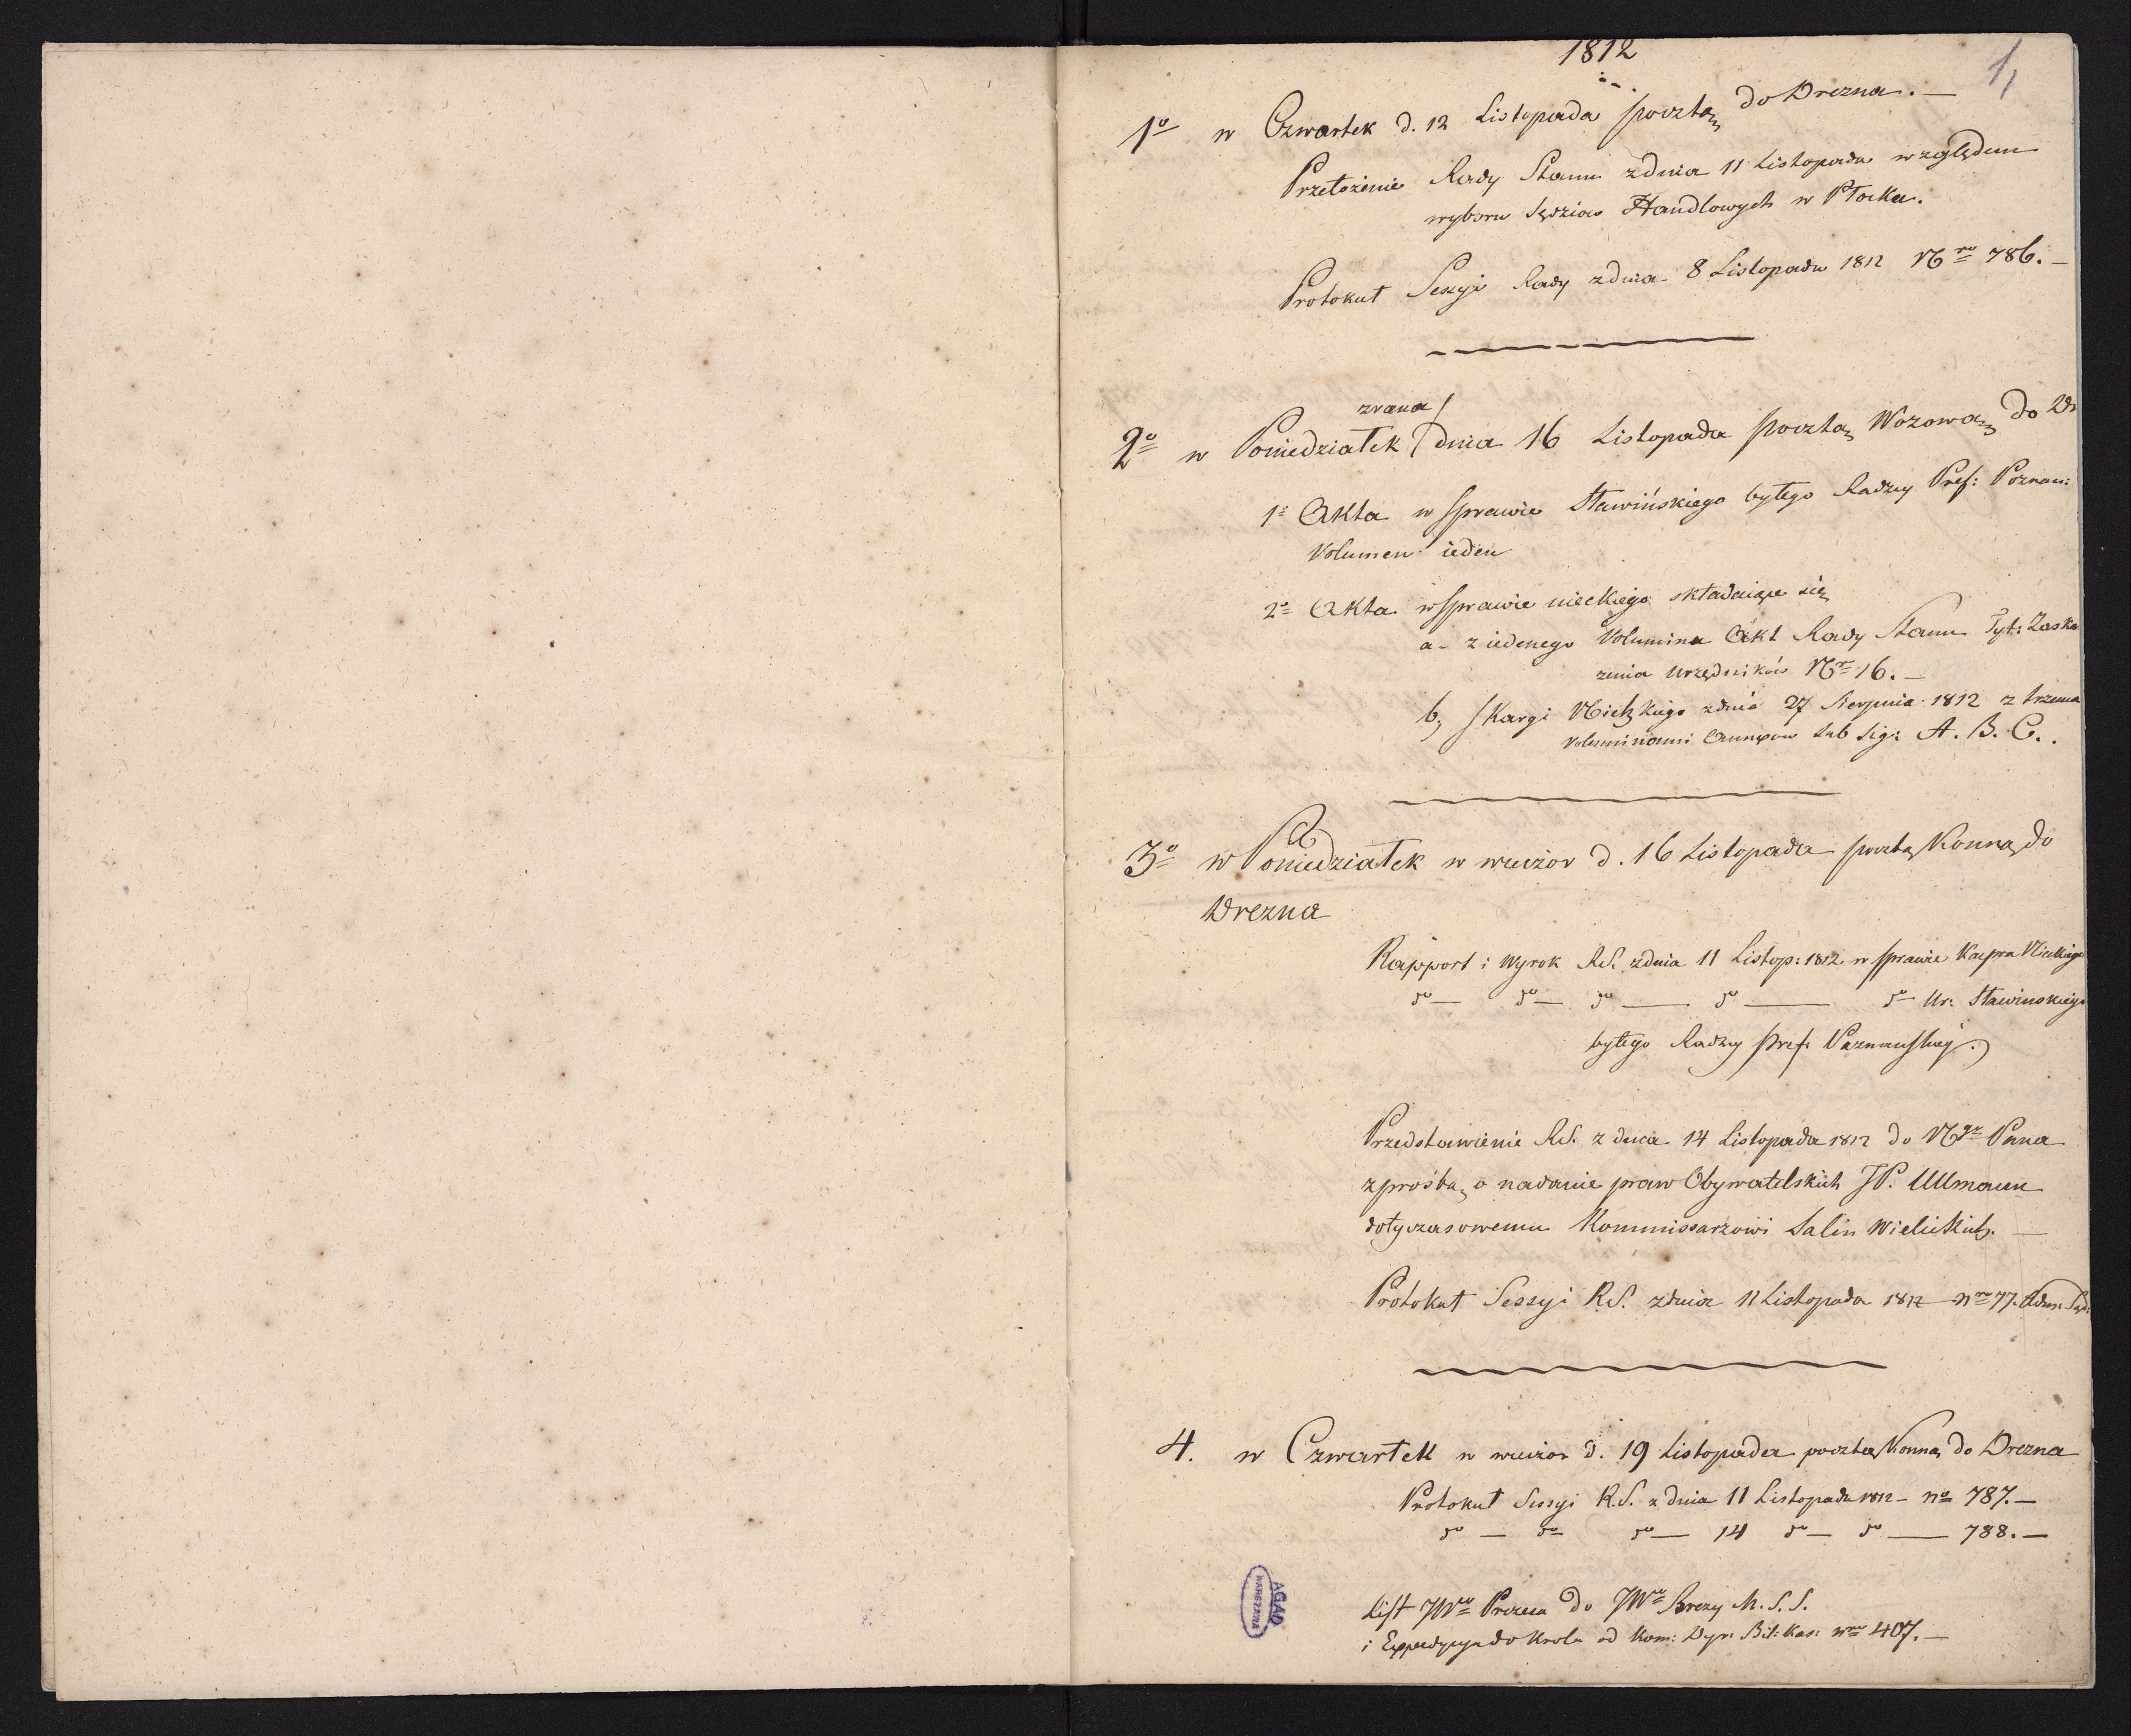 1812
1,
1o w Czwartek d. 12 Listopada pocztą do Drezna. —
Przełożenie Rady Stanu zdnia 11 Listopada względem
wyboru Sędziow Handlowych w Płocku.
Protokuł Sessyi Rady zdnia 8 Listopada 1812 Nro 786. —
zrana
2o w Poniedziałek dnia 16 Listopada pocztą Wozową do Dr
1o Akta w sprawie Sławińskiego byłego Radzcy Pref: Poznan:
Volumen ieden
2o Akta wsprawie nieckiego składaiące się
a - z iednego Volumina Akt Rady Stanu Tyt: Zaska
zenia Urzędników Nro 16. —
b, Skargi Nieckiego zdnia 27 Sierpnia 1812 z trzema
voluminami Annexow sub Sig: A. B. C..
3o w Poniedziałek w wieczor d. 16 Listopada pocztą Konną do
Drezna
Rapport i Wyrok R.S. zdnia 11 Listop: 1812 w sprawie Kacpra Nieckiego
do — do — do — do — do Ur: Sławinskiego
byłego Radzcy Pref: Poznanskiej.)
Przedstawienie R.S. z dnia 14 Listopada 1812 do Ngo Pana
zprośbą o nadanie praw Obywatelskich JP. Ullmann
dotyczasowemu Kommissarzowi Salin Wielickich. —
Protokuł Sessyi R.S. zdnia 11 Listopada 1812 nro 77. Adm: Sąd:
4. w Czwartek w wieczor d. 19 Listopada pocztą Konną do Drezna
Protokuł Sessyi R.S. z dnia 11 Listopada 1812 — no 787. —
do — do do — 14 do — do — 788. —
List JWgo Prezesa do JWgo Brezy M.S.S.
i Expedycya do Krola od Kom: Dyr: Bil: Kas: nro 407. —
AGAD
WARSZAWA